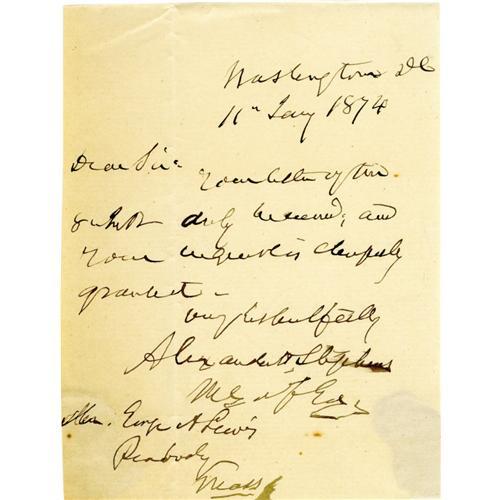 Washington DC
11th Jany 1874
Dear Sir
Your letter of the
8 inst duly received; and
Your request is cheerfully
granted -
very respectfully
Alexander H. Stephens
M.C. of Ga
George A Lewis
Peabody
Mass